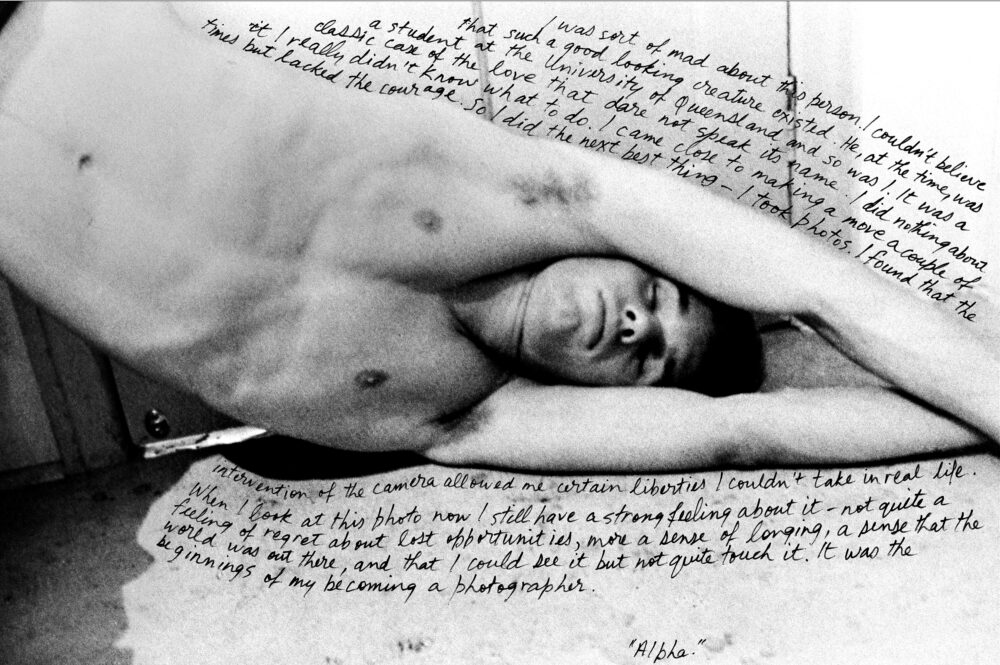 I was sort of mad about this person. I couldn't believe
that such a good looking creature existed. He, at the time, was
a student at the University of Queensland and so was I. It was a
classic case of the love that dare not speak its name. I did nothing about
it I really didn't know what to do. I came close to making a move a couple of
times but lacked the courage. So I did the next best thing – I took photos. I found that the
intervention of the camera allowed me certain liberties I couldn't take in real life.
When I look at this photo now I still have a strong feeling about it – not quite a
feeling of regret about lost opportunities, more a sense of longing, a sense that the
world was out there, and that I could see it but not quite touch it. It was the
beginnings of my becoming a photographer.
"Alpha."